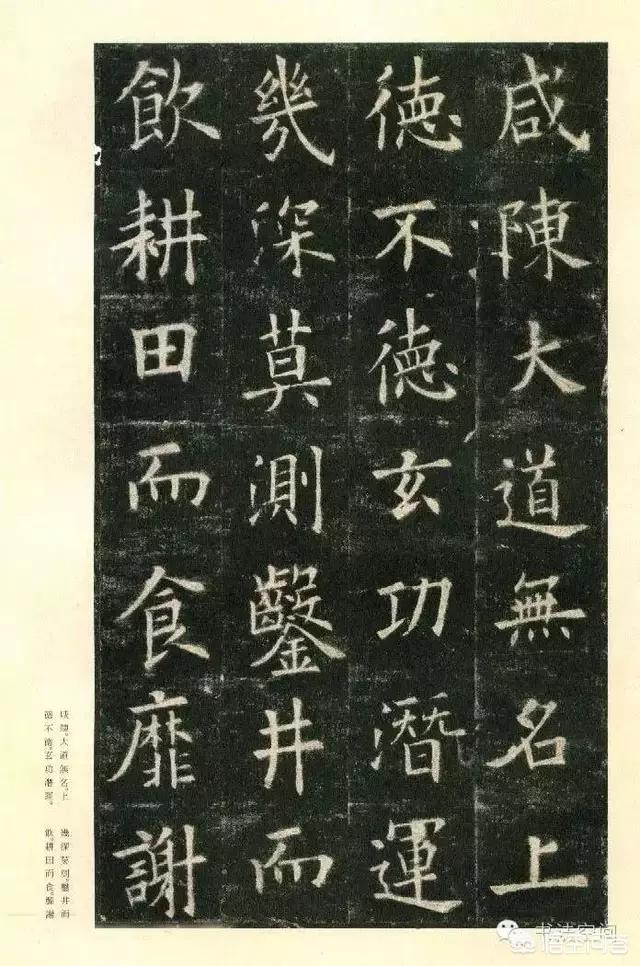 咸陳大道無名上
德不德玄功潛運
幾深莫測鑿井而
飲耕田而食靡謝
咸陳大道無名上
德不德玄功潛運
幾深莫測鑿井而
飲耕田而食靡謝
书法空间
悟空问答